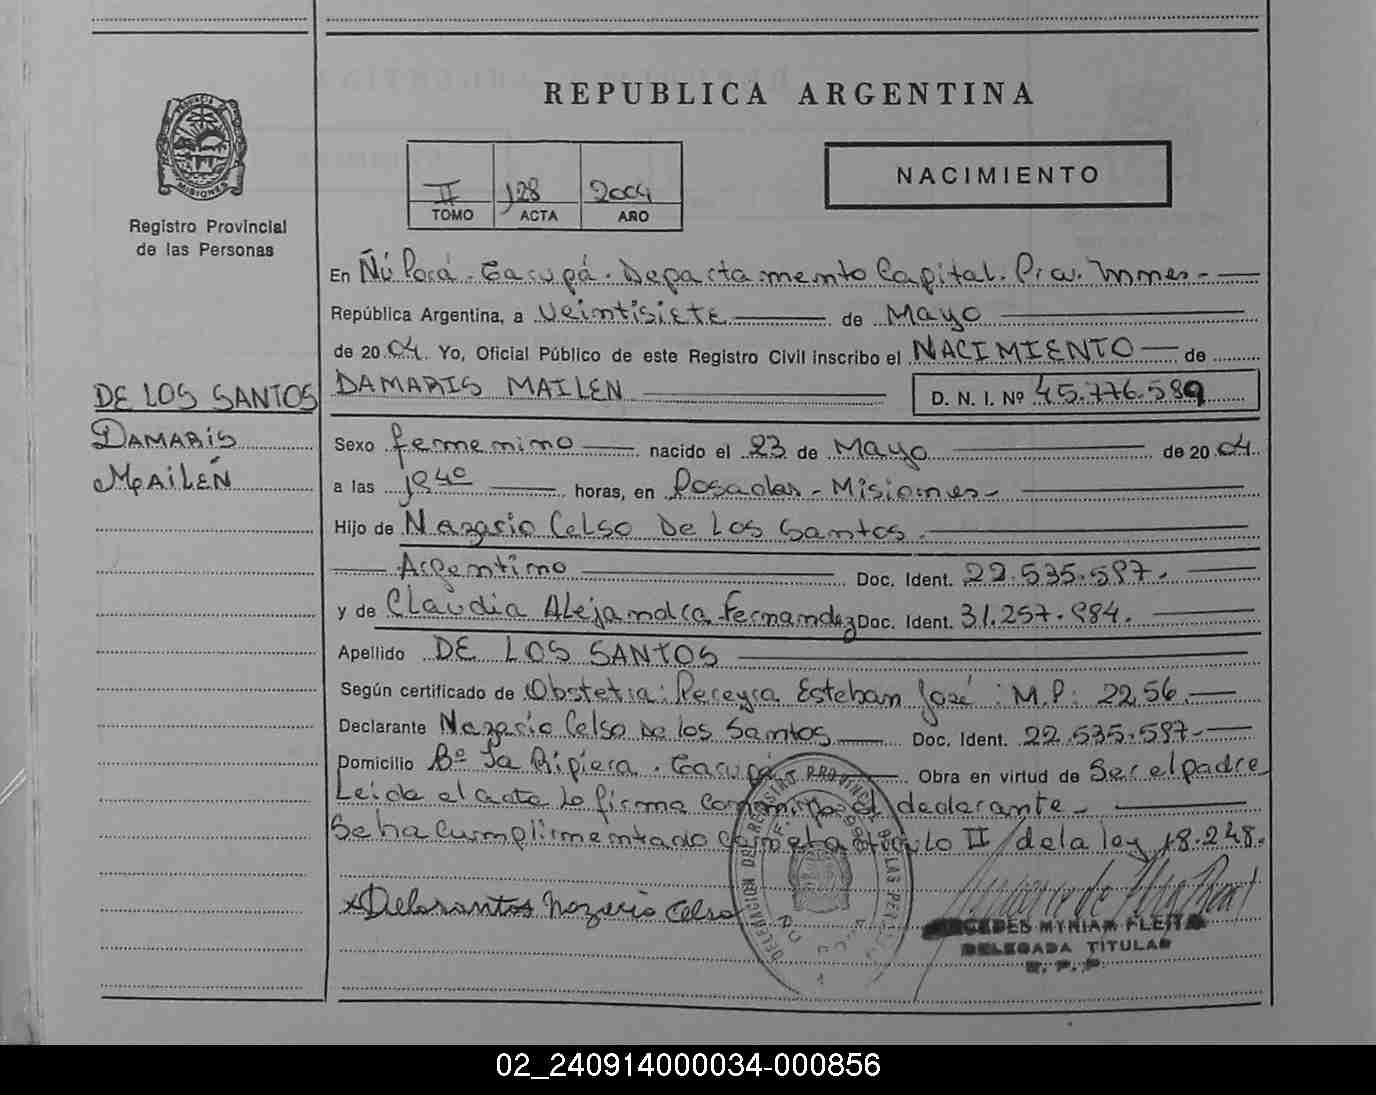 REPUBLICA ARGENTINA
PROVINCIA DE
MISIONES
Registro Provincial
de las Personas
II 128 2004
TOMO ACTA AÑO
NACIMIENTO
En Ñú Porá - Garupá - Departamento Capital. Prov. Mnes -
República Argentina, a veintisiete de Mayo
de 2004. Yo, Oficial Público de este Registro Civil inscribo el NACIMIENTO de
DAMARIS MAILEN D. N. I. Nº 45.776.589
DE LOS SANTOS
DAMARIS
MAILÉN
Sexo femenino nacido el 23 de Mayo de 2004.
a las 1840 horas, en Posadas - Misiones -
Hijo de Nazario Celso De Los Santos.
Argentino Doc. Ident. 22.535.587.
y de Claudia Alejandra Fernandez Doc. Ident. 31.257.984.
Apellido DE LOS SANTOS
Según certificado de Obstetra: Pereyra Esteban José: M.P: 2256.
Declarante Nazario Celso De los Santos Doc. Ident. 22.535.587-
Domicilio Bº La Ripiera. Garupá Obra en virtud de Ser el padre
Leida el acta la firma conmigo el declarante -
Se ha cumplimentado con el artículo II de la ley 18.248.
x Delosantos Nazario Celso
DELEGACION DEL REGISTRO PROVINCIAL DE LAS PERSONAS
MYRIAM FLEITA
DELEGADA TITULAR
R. P. P.
02_240914000034-000856